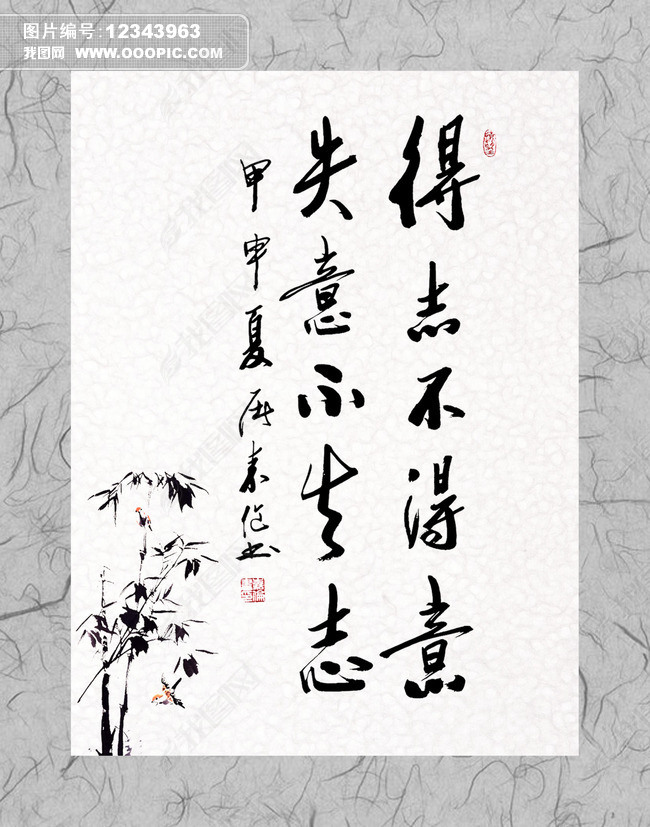 图片编号:12343963
我图网 www.OOOPIC.com
得志不得意
失意不失志
甲申夏